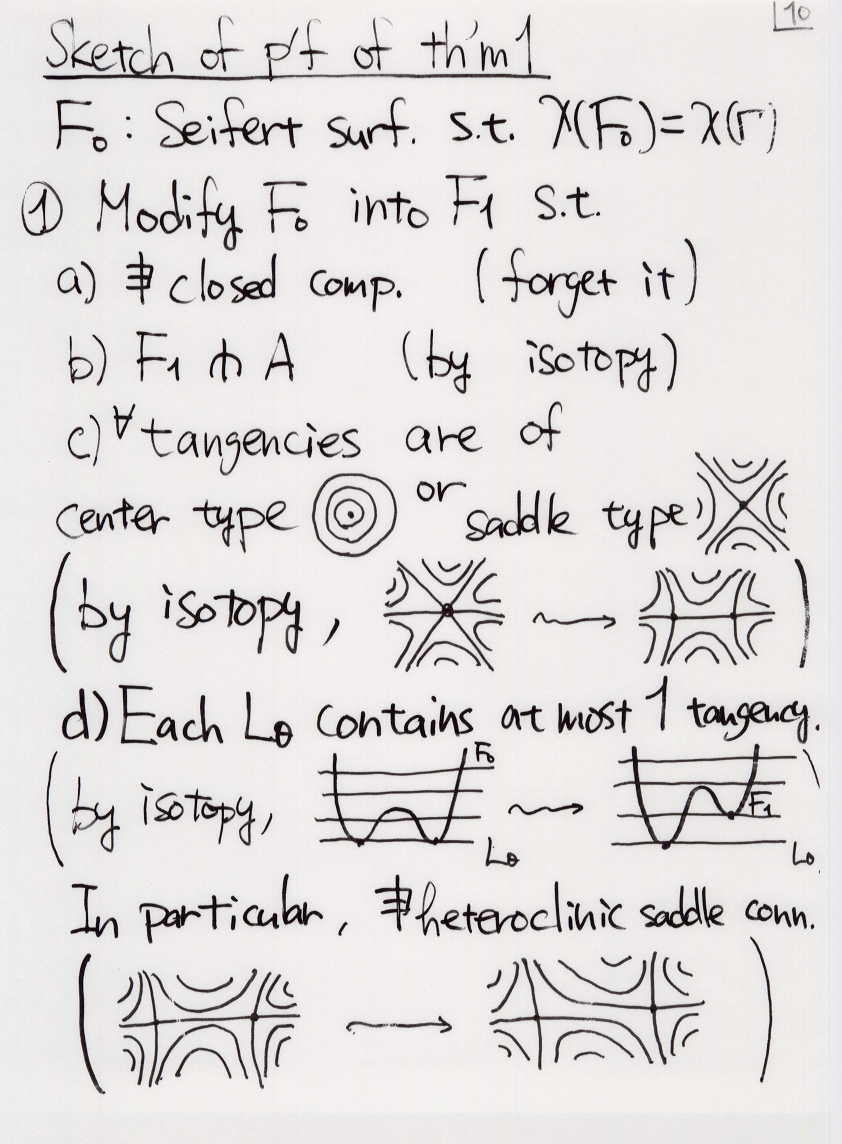 10
Sketch of p'f of th'm 1
F₀ : Seifert surf. s.t. χ(F₀)=χ(Γ)
① Modify F₀ into F₁ s.t.
a) ∄ closed comp. (forget it)
b) F₁ ⋔ A (by isotopy)
c) ∀ tangencies are of
center type or saddle type
(by isotopy, )
d) Each Lθ contains at most 1 tangency.
(by isotopy, F₀ Lθ F₁ Lθ)
In particular, ∄ heteroclinic saddle conn.
( )